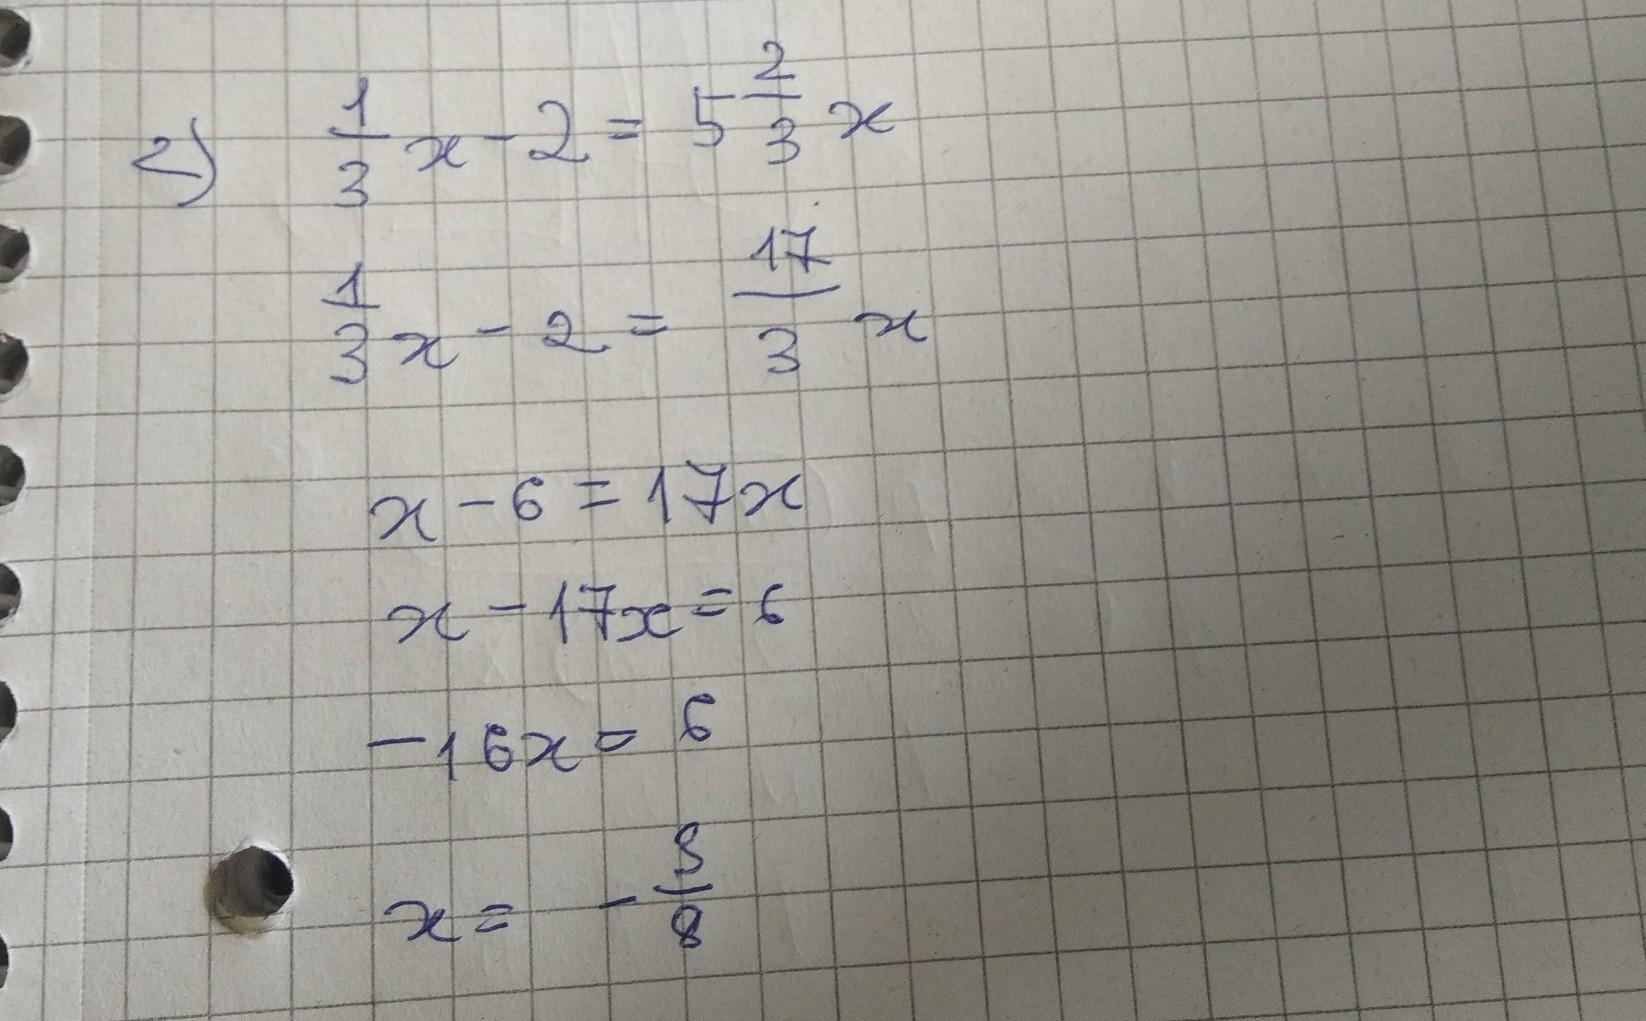 2) 1/3 x - 2 = 5 2/3 x
1/3 x - 2 = 17/3 x
x - 6 = 17x
x - 17x = 6
-16x = 6
x = - 3/8